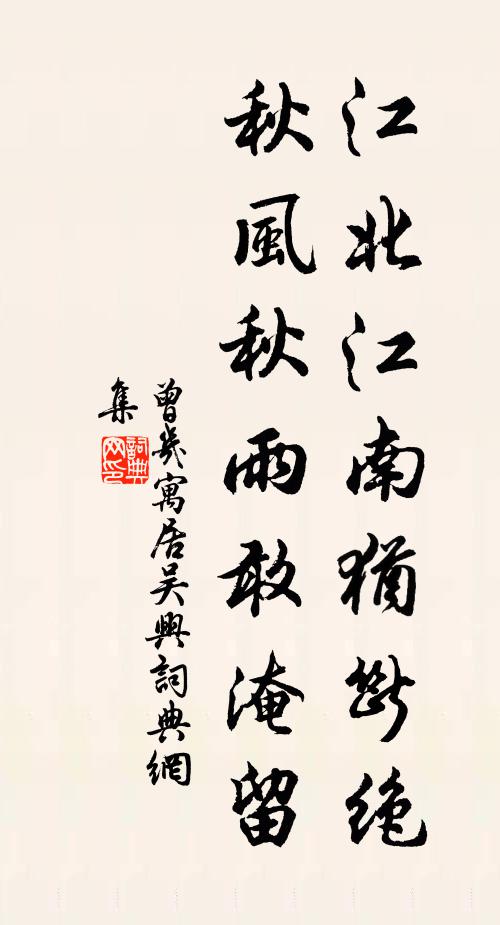 江北江南猶斷絕
秋風秋雨敢淹留
曾幾寓居吳興詞典網
集
詞典
网印